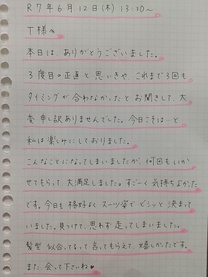 R7年6月12日(木) 13:10〜
T様♡
本日は ありがとうございました。
3度目の正直と思いきや これまで3回も
タイミングが合わなかったとお聞きして、大
変申し訳ありませんでした。今日こそは…と
私は楽しみにしておりました。
こんなことになってしまいましたが 何回もいか
せてもらって 大満足しました。すごーく気持ちよかった
です。今日も格好よくスーツ姿でビシッと決まって
いました。見つけて、思わず走ってしまいました。
髪型 似合ってるって言ってもらえて、嬉しかったです。
また 会って下さいね♥